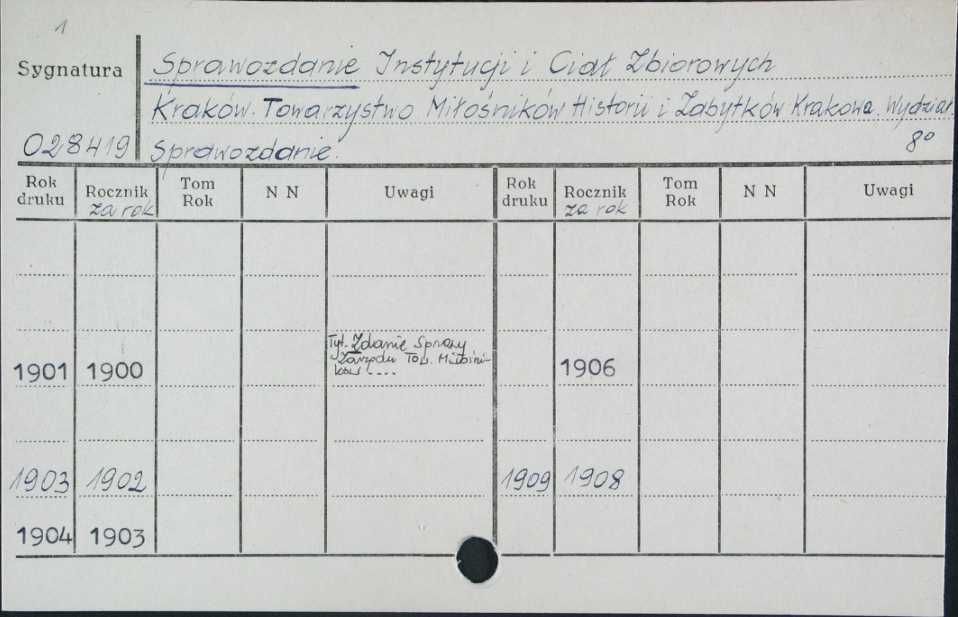 1
Sygnatura
Sprawozdanie Instytucji i Ciał Zbiorowych
Kraków. Towarzystwo Miłośników Historii i Zabytków Krakowa. Wydział.
028419
Sprawozdanie.
8°
Rok druku Rocznik za rok Tom Rok N N Uwagi Rok druku Rocznik za rok Tom Rok N N Uwagi
Tyt. Zdanie Sprawy
Zarządu Tow. Miłośni-
ków ....
1901 1900 1906
1903 1902 1909 1908
1904 1903